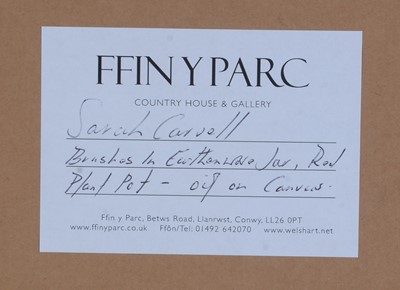 FFIN Y PARC
COUNTRY HOUSE & GALLERY
Sarah Carvell
Brushes In Earthenware Jar, Red
Plant Pot - oil on Canvas.
Ffin y Parc, Betws Road, Llanrwst, Conwy, LL26 0PT
www.ffinyparc.co.uk Ffôn/Tel: 01492 642070 www.welshart.net